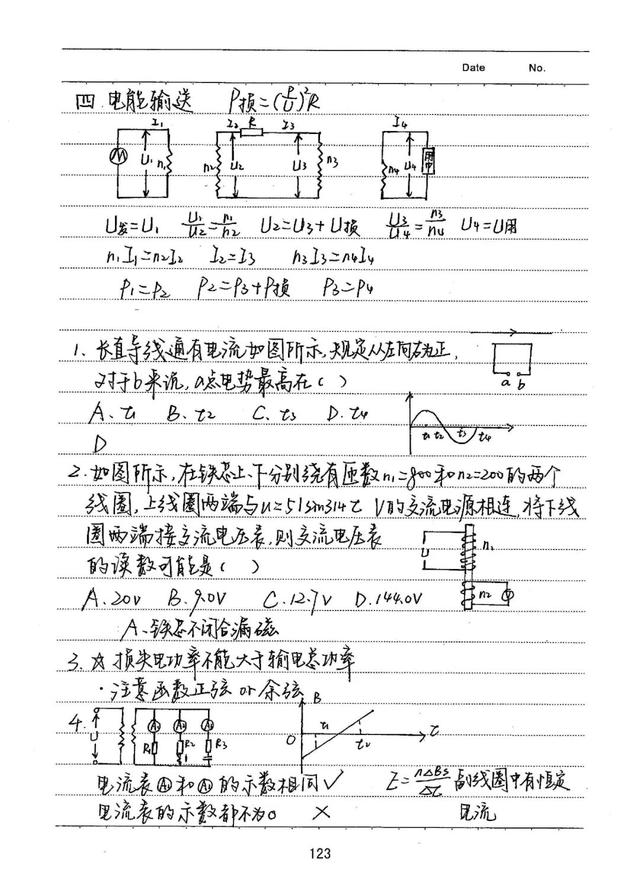 Date No.
四 电能输送 P损=(P/U)²R
I₁ I₂ R I₃ I₄
U₁ n₁ n₂ U₂ U₃ n₃ n₄ U₄ 用电
U发=U₁ U₁/U₂=n₁/n₂ U₂=U₃+U损 U₃/U₄=n₃/n₄ U₄=U用
n₁I₁=n₂I₂ I₂=I₃ n₃I₃=n₄I₄
P₁=P₂ P₂=P₃+P损 P₃=P₄
1. 长直导线通有电流如图所示,规定从左向右为正,
对于b来说,a点电势最高在( )
a b
A. t₁ B. t₂ C. t₃ D. t₄
t₁ t₂ t₃ t₄
D
2. 如图所示,在铁芯上、下分别绕有匝数n₁=800和n₂=200的两个
线圈,上线圈两端与u=51sin314t V的交流电源相连,将下线
圈两端接交流电压表,则交流电压表
U n₁
的读数可能是( )
A. 2.0V B. 9.0V C. 12.7V D. 144.0V
n₂ V
A、铁芯不闭合漏磁
3. 损失电功率不能大于输电总功率
·注意函数正弦 or 余弦
4. U A₁ A₂ A₃ R₁ R₂ R₃ B O t₁ t₂ t
电流表 和 的示数相同 ✓ E=nΔBS/Δt 副线圈中有恒定
电流表的示数都不为0 × 电流
123